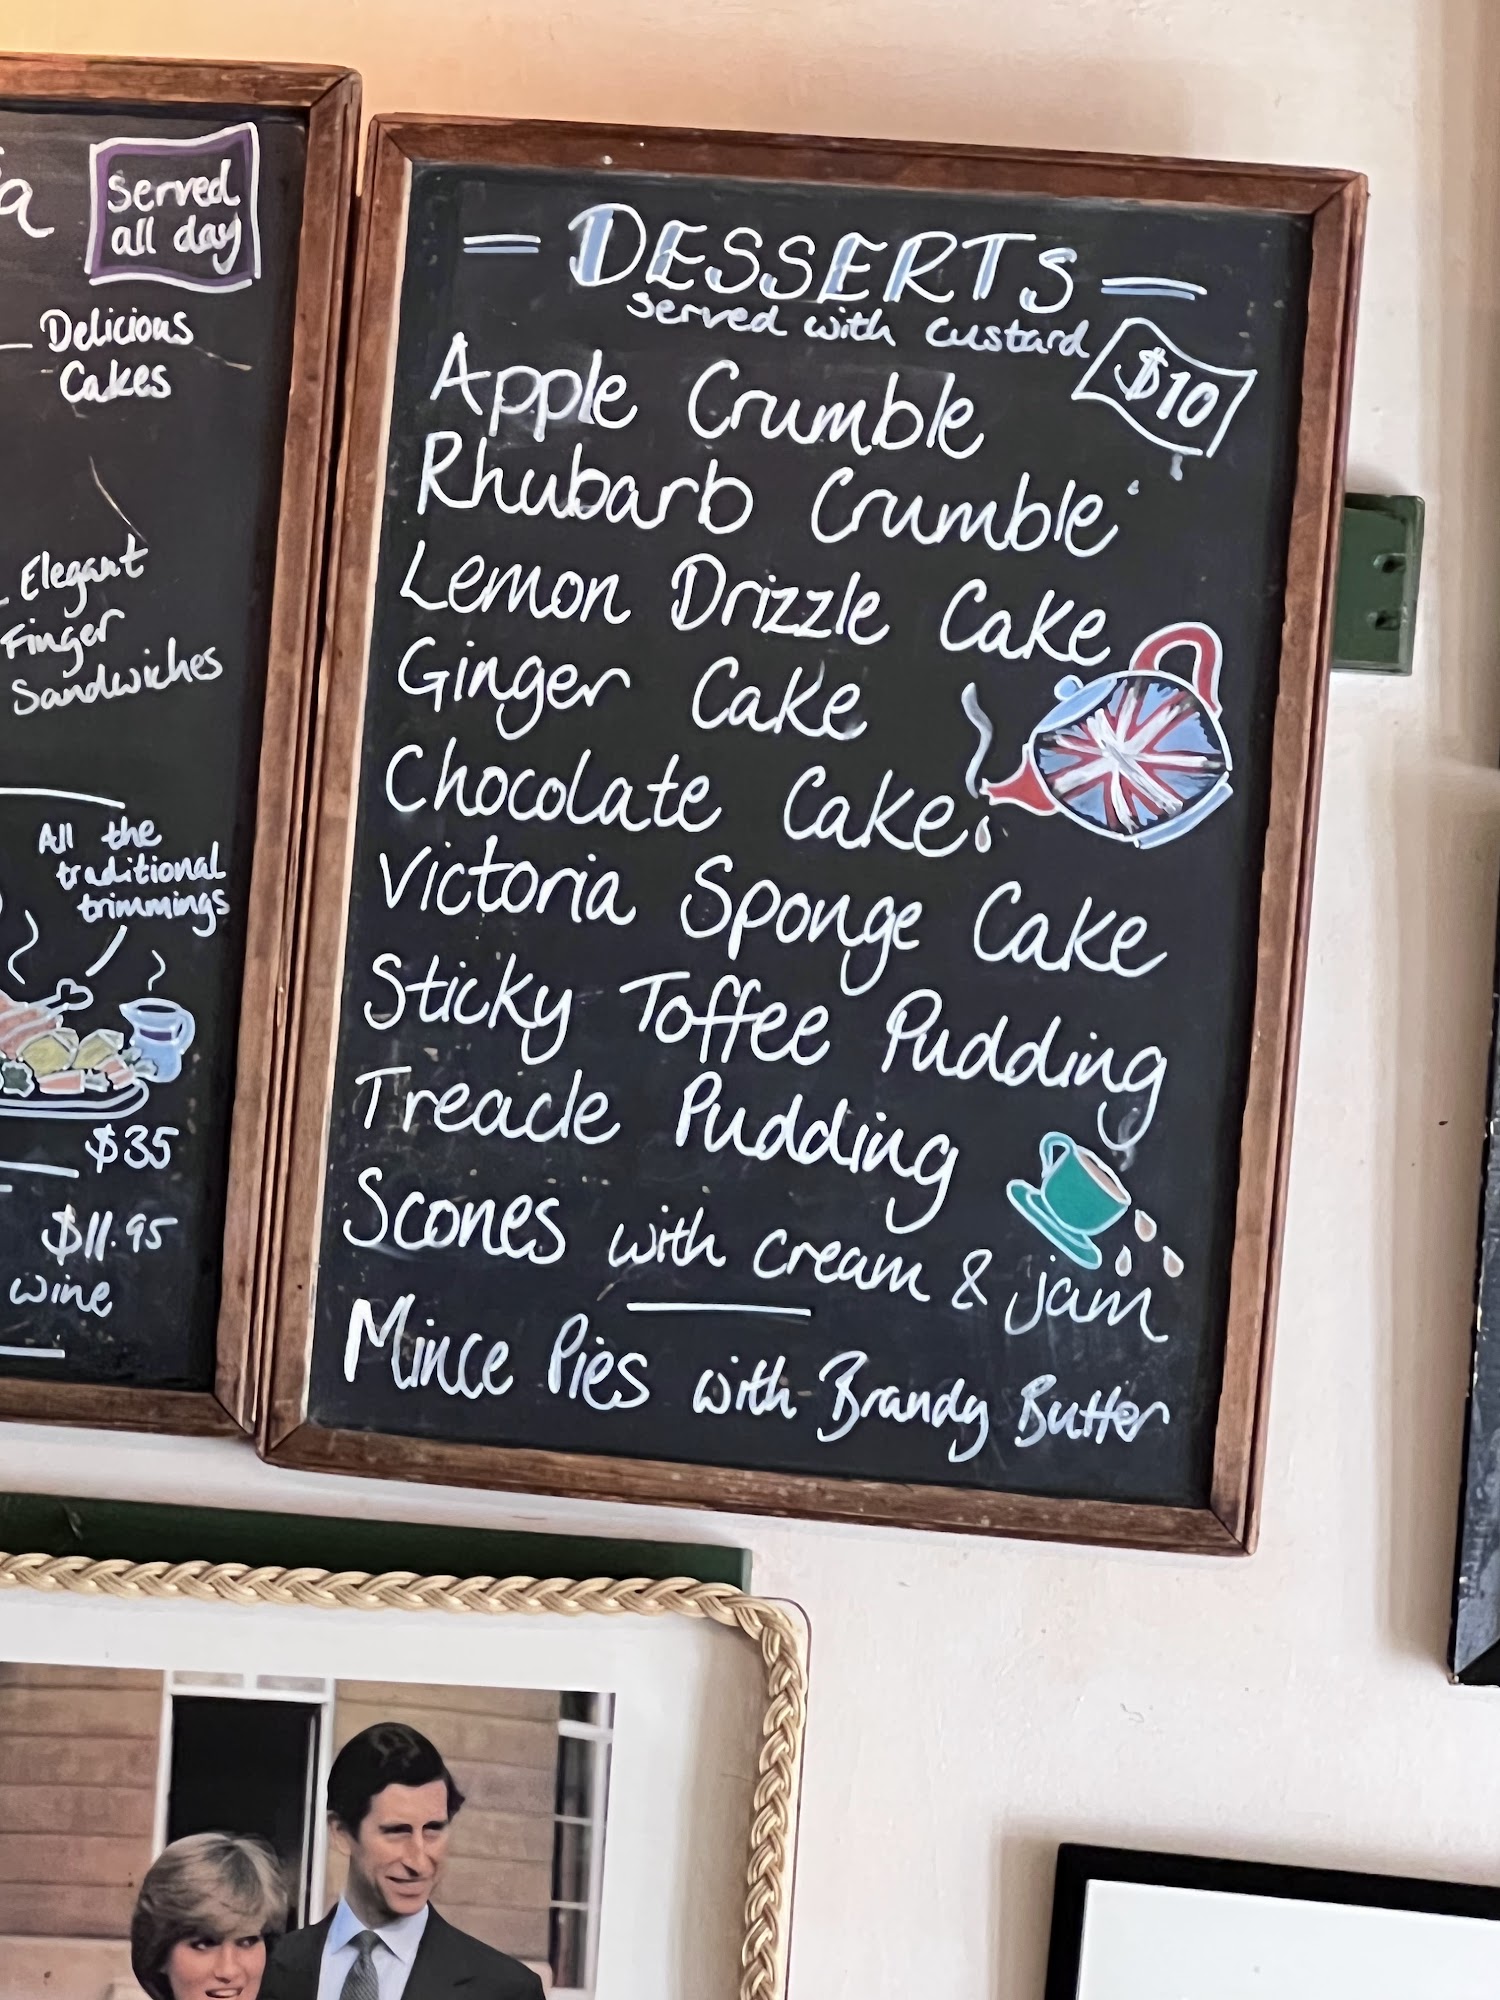 Served
all day
Delicious
Cakes
Elegant
Finger
Sandwiches
All the
traditional
trimmings
$35
$11.95
wine
DESSERTS
served with custard
$10
Apple Crumble
Rhubarb Crumble
Lemon Drizzle Cake
Ginger Cake
Chocolate Cake
Victoria Sponge Cake
Sticky Toffee Pudding
Treacle Pudding
Scones with cream & jam
Mince Pies with Brandy Butter